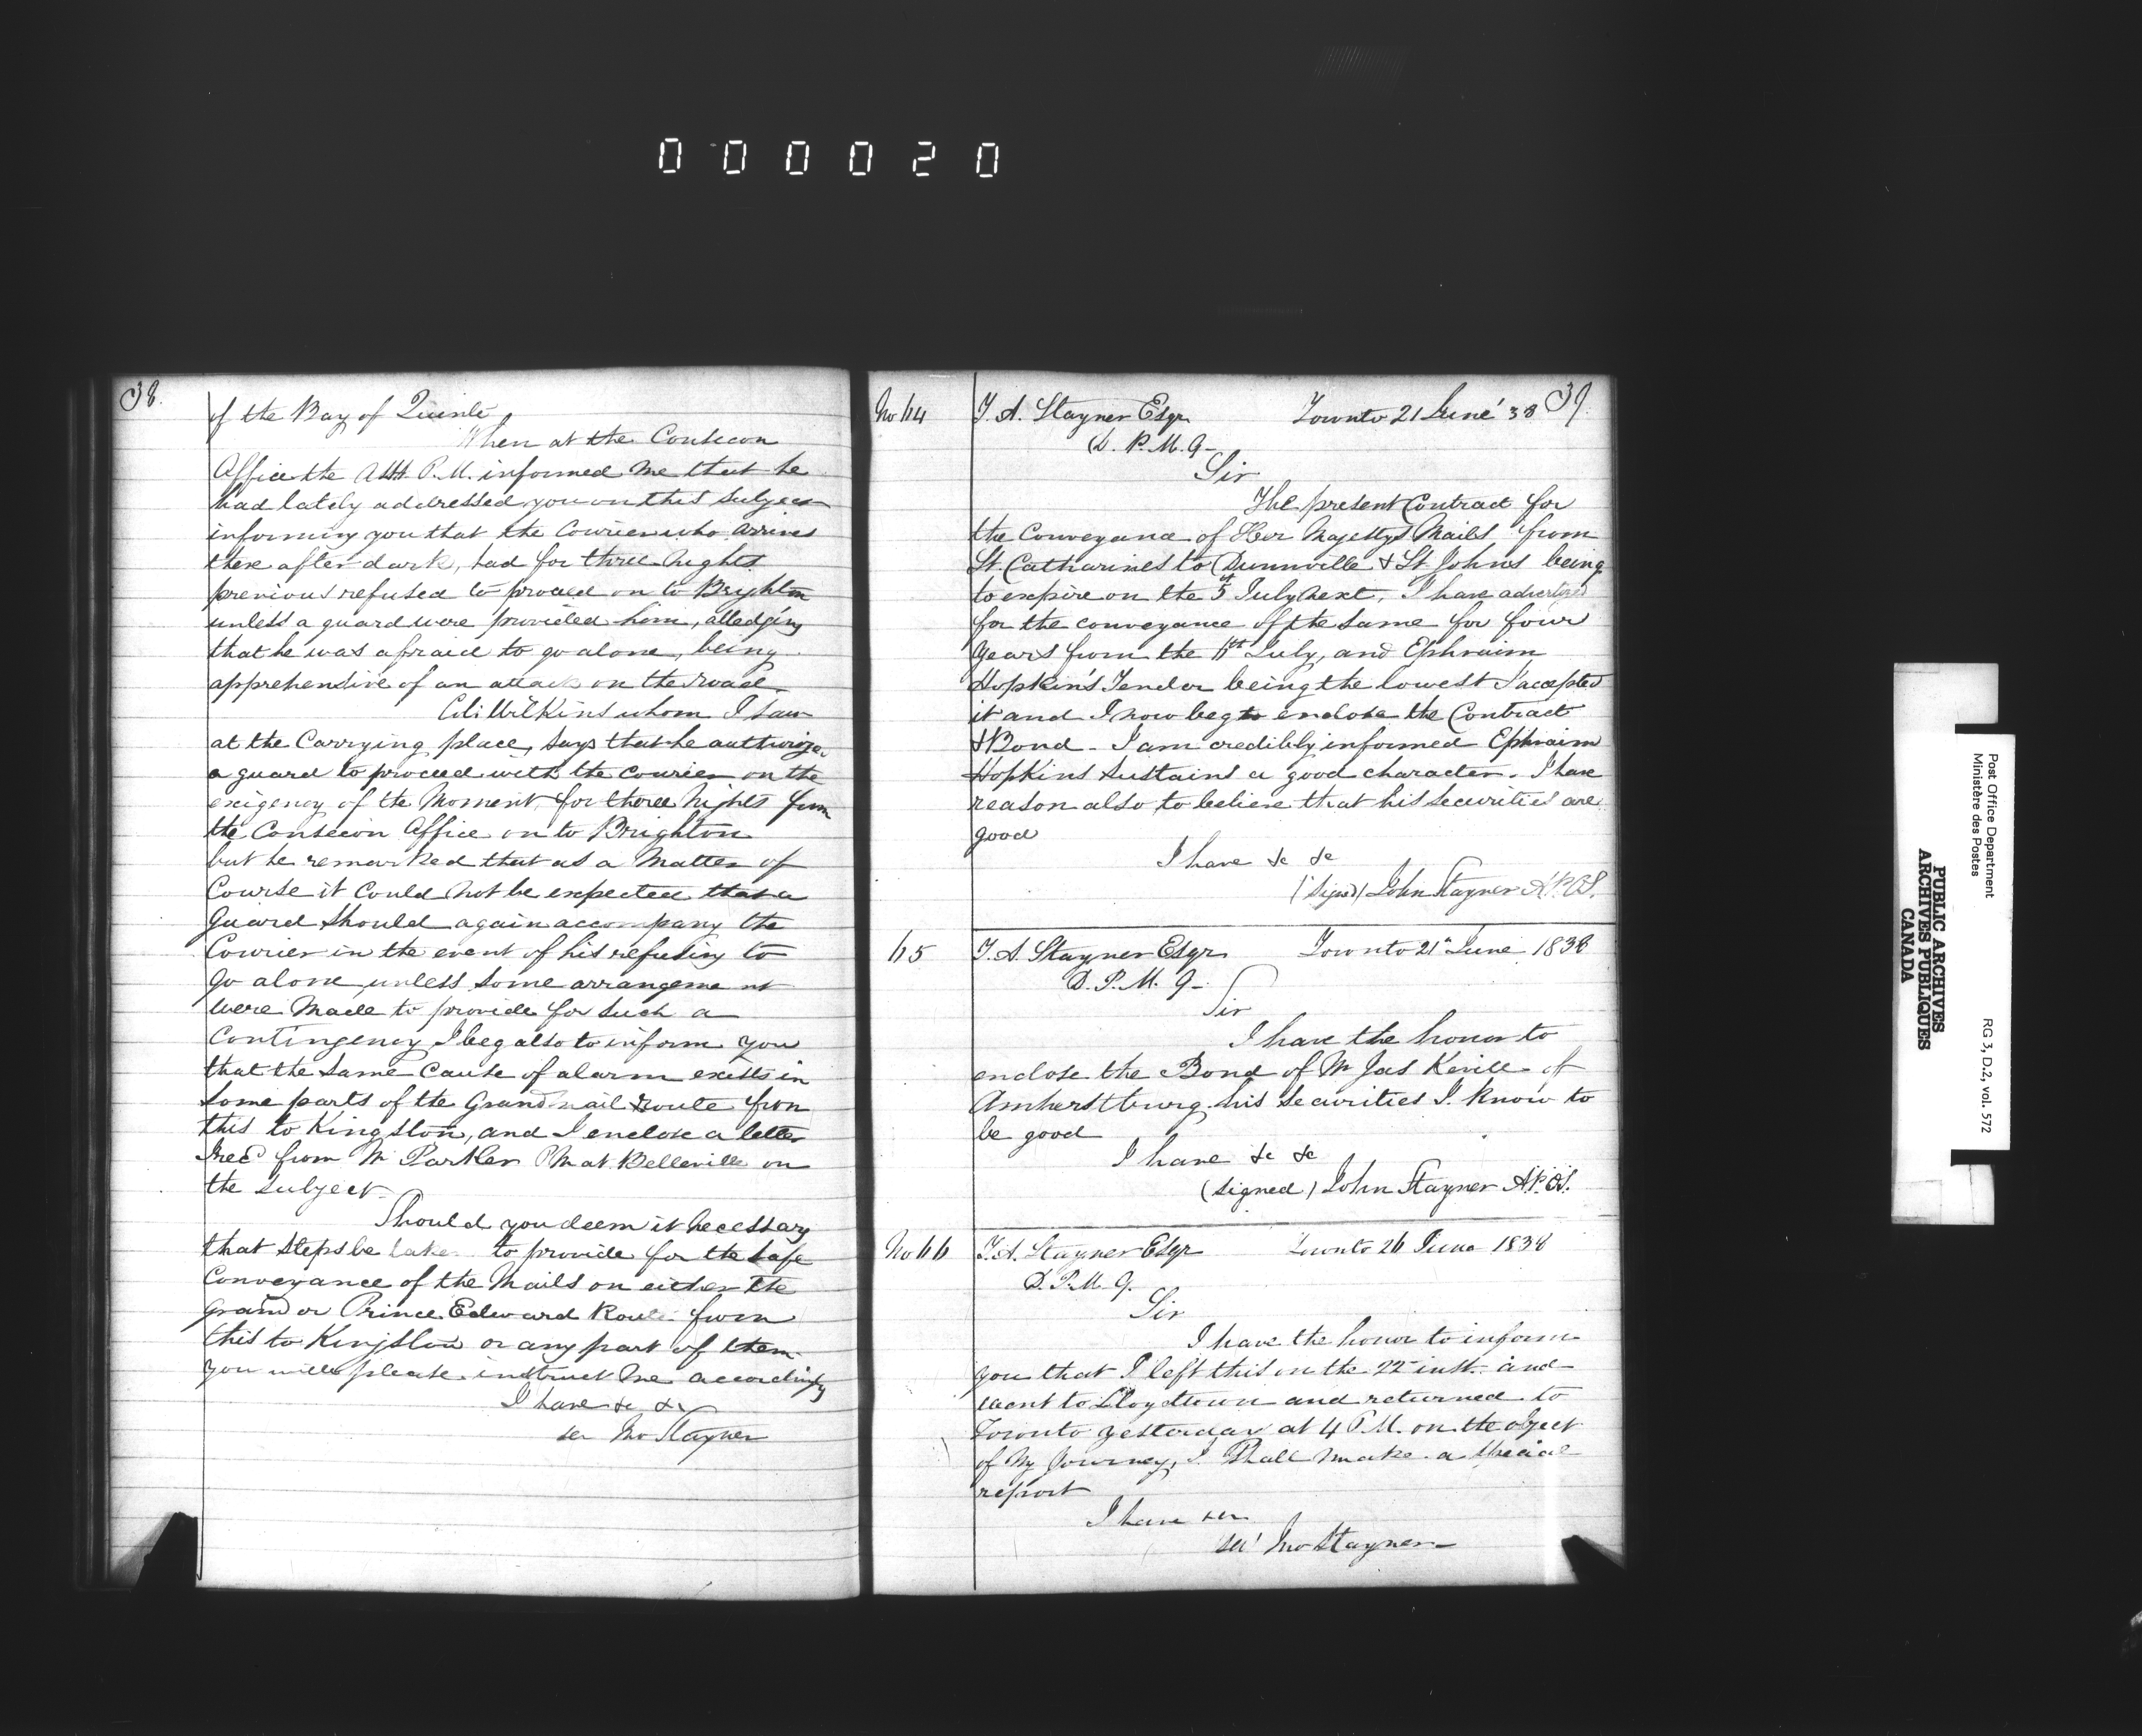 000020
38.
of the Bay of Quinté
When at the Consecon
Office the Asst P.M. informed me that he
had lately addressed you on this subject
informing you that the Courier who arrives
there after dark, had for three nights
previous refused to proceed on to Brighton
unless a guard were provided him, alledging
that he was afraid to go alone, being
apprehensive of an attack on the road.
Col: Wilkins whom I saw
at the Carrying place, says that he authorize
a guard to proceed with the courier on the
exigency of the Moment, for three nights from
the Consecon Office on to Brighton
but he remarked that as a Matter of
Course it Could not be expected that a
Guard Should again accompany the
Courier in the event of his refusing to
go alone, unless some arrangement
were Made to provide for such a
Contingency I beg also to inform you
that the same Cause of alarm exists in
some parts of the Grand mail route from
this to Kingston, and I enclose a letter
I recd from Mr Parker PM at Belleville on
the subject.
Should you deem it necessary
that steps be taken to provide for the safe
Conveyance of the Mails on either the
Grand or Prince Edward Route from
this to Kingston or any part of them
you will please instruct me accordingly
I have &c &c
Jno Stayner
39.
No 64
T. A. Stayner Esqr Toronto 21 June 38
D. P. M. G-
Sir
The present Contract for
the Conveyance of Her Majestys Mails from
St. Catharines to Dunnville & St Johns being
to expire on the 5 July next, I have advertized
for the conveyance of the same for four
years from the 6th July, and Ephraim
Hopkin's Tender being the lowest I accepted
it and I now beg to enclose the Contract
& Bond - I am credibly informed Ephraim
Hopkins Sustains a good character. I have
reason also to believe that his securities are
good
I have &c &c
(signed) John Stayner A.P.O.S.
65
T. A. Stayner Esqr Toronto 21 June 1838
D. P. M. G-
Sir
I have the honor to
enclose the Bond of Mr Jas Kevill of
Amherstburg his securities I know to
be good
I have &c &c
(signed) John Stayner A.P.O.S.
No 66
T. A. Stayner Esqr Toronto 26 June 1838
D. P. M. G.
Sir
I have the honor to inform
you that I left this on the 22 inst. and
went to Lloydtown and returned to
Toronto yesterday at 4 P.M. on the object
of my Journey, I Shall make a special
report
I have
Jno Stayner
Post Office Department
Ministère des Postes
RG 3, D.2, vol. 572
PUBLIC ARCHIVES
ARCHIVES PUBLIQUES
CANADA